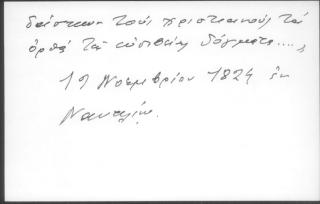 διδάσκων τούς χριστιανούς τά
ὀρθά τῆς εὐσεβείας δόγματα....,
19 Νοεμβρίου 1824 ἐν
Ναυπλίῳ.